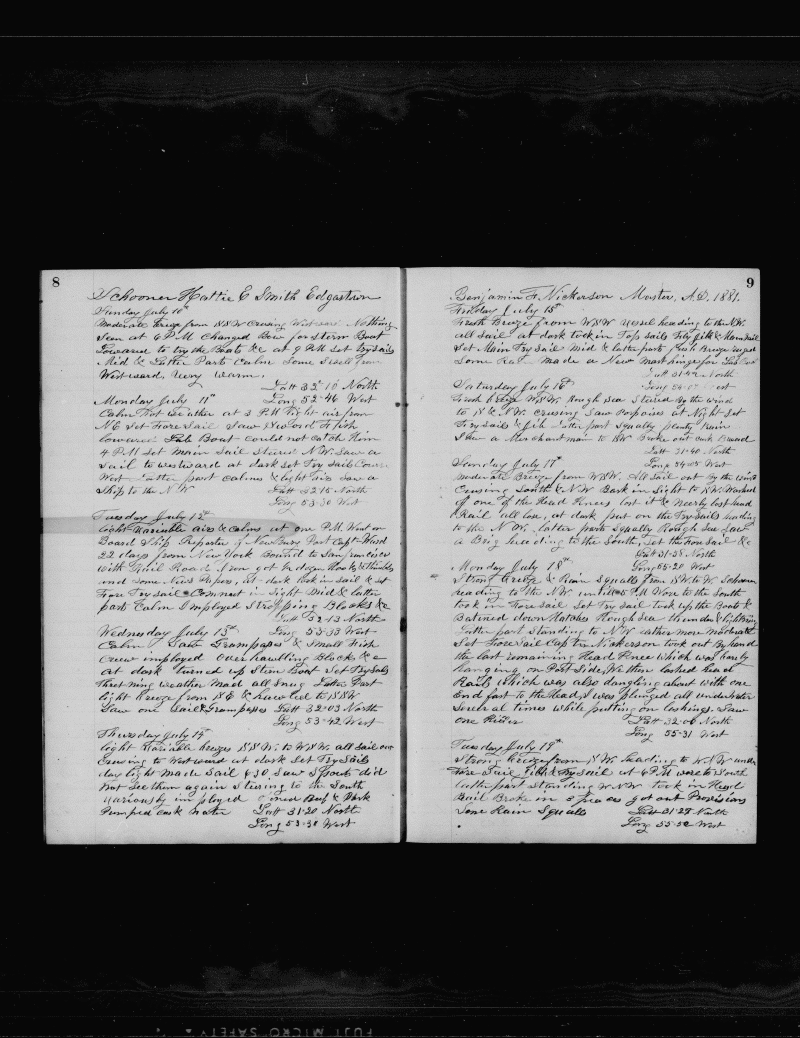 8
Schooner Hattie E Smith Edgartown
Sunday July 10th
Moderate breeze from WSW Cruising Westward Nothing
Seen at 6 PM Changed Bow for Stern Boat
Lowered to try the Boats &c at 9 PM Set Trysails
Mid & Latter Parts Calm Some Swell from
Westward. Very warm.
Latt 32-10 North
Long 52-46 West
Monday July 11th
Calm Hot weather at 3 PM light air from
NE Set Fore Sail Saw Sword Fish
lowered Boat could not Catch Him
4 PM Set main Sail Steared NW. Saw a
Sail to westward at dark set Try Sails Course
West Latter part calms & light airs Saw a
Ship to the NW
Latt 32-15 North
Long 53-30 West
Tuesday July 12th
light Variable airs & Calms at one P.M. Went on
Board Ship Reporter of NewBury Port Capt Ward
22 days from New York Bound to San Francisco
with Rail Road Iron got
and some News Papers, at dark took in sail & set
Fore Try sail in Sight Mid & latter
parts Calm Imployed Stropping Blocks &c
Latt 32-13 North
Long 53-33 West
Wednesday July 13th
Calm Saw Grampases & Small Fish
Crew imployed overhawlling Blocks &c
at dark turned up Stern Boat Set Try Sails
Thretning weather Made all Snug Latter Part
light Breeze from SE & hawled to SSW
Saw one Sail & Grampases
Latt 32-03 North
Long 53-42 West
Thursday July 14th
light Variable breezes SSW. to WSW. all Sail on
Cruising to Westward at dark Set Try Sails
day light made Sail 6-30 Saw Spouts did
not See them again Stering to the South
Variously imployed Beef & Pork
Pumped Cask Water
Latt 31-20 North
Long 53-30 West
9
Benjamin F. Nickerson Master, A.D. 1881.
Friday July 15th
Fresh Breeze from WSW Vessel heading to the NW.
all Sail at dark took in Top sails Fly jib & Main Sail
Set Main Try Sail Mid & latter part Fresh Breeze rugged
Some made a New Mast hinge for
Latt 31-42 North
Long West
Saturday July 16th
Fresh Breeze WSW. Rough sea Stered By the wind
to N.W. Cruising Saw Porpoises at Night Set
Try Sails & jib Latter part Squally plenty Rain
Saw a Merchantman to Broke out Cask Bread
Latt 31-40 North
Long 54-05 West
Sunday July 17th
Moderate Breeze from WSW. All Sail out By the wind
Cruising South & NW Bark in Sight to Worked
of one of the Head Knees lost it & nearly lost head
Rail all lose, at dark put on the Try Sails heading
to the NW. latter part Squally Rough Sea Saw
a Brig heading to the South, Set the Fore Sail &c
Latt 31-58 North
Long 55-20 West
Monday July 18th
Strong breeze & Rain Squalls from SW. to W. Schooner
heading to the NW. until 5 P.M Wore to the South
took in Fore sail Set Try Sail took up the Boats &
Batined down Hatches Rough Sea thunder & lightning
Latter part Standing to NW rather more moderate
Set Fore Sail Captn Nickerson took out By hand
the last remaining Head Knee which was barely
hanging, on Port Side, We then lashed head
Rails Which was also dangling about with one
End fast to the Head, & was plunged all under water
Several times while putting on lashings. Saw
one Rider
Latt 32-06 North
Long 55-31 West
Tuesday July 19th
Strong breeze from W. heading to NNW under
Fore Sail & Try Sail at 4 P.M wore to South
Latter part Standing WNW took in Head
Rail Broke in 3 peaces got out Provisions
Some Rain Squalls
Latt 31-27 North
Long 55-52 West
FUJI MICRO SAFETY